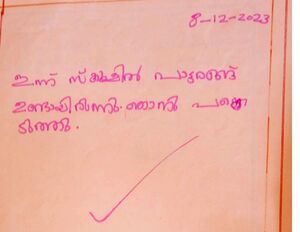 8-12-2023
ഇന്ന് സ്കൂളിൽ പാട്ടരങ്ങ്
ഉണ്ടായിരുന്നു. ഞാനും പങ്കെ
ടുത്തു.